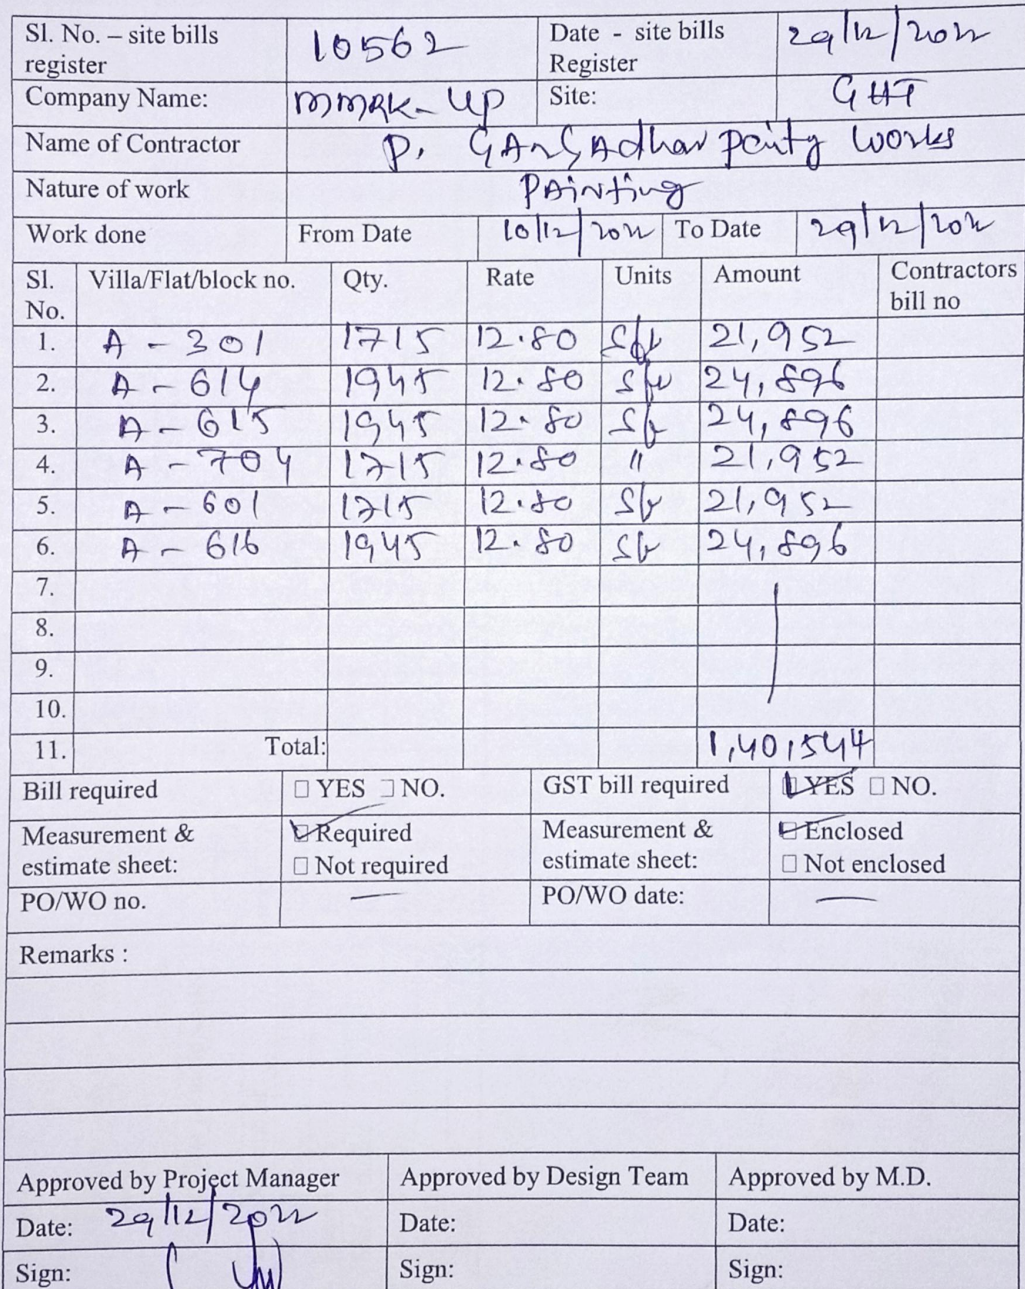 Sl. No. – site bills register 10562 Date - site bills Register 29/12/2022
Company Name: MMRK-UP Site: GHT
Name of Contractor P. GANGAdhar painty works
Nature of work PAINting
Work done From Date 10/12/2022 To Date 29/12/2022
Sl. No. Villa/Flat/block no. Qty. Rate Units Amount Contractors bill no
1. A - 301 1715 12.80 Sft 21,952
2. A - 614 1945 12.80 Sft 24,896
3. A - 615 1945 12.80 Sft 24,896
4. A - 704 1715 12.80 " 21,952
5. A - 601 1715 12.80 Sft 21,952
6. A - 616 1945 12.80 Sft 24,896
7.
8.
9.
10.
11. Total: 1,40,544
Bill required ☐ YES ☐ NO. GST bill required ☑ YES ☐ NO.
Measurement & estimate sheet: ☑ Required Measurement & estimate sheet: ☑ Enclosed
☐ Not required ☐ Not enclosed
PO/WO no. — PO/WO date: —
Remarks :
Approved by Project Manager Approved by Design Team Approved by M.D.
Date: 29/12/2022 Date: Date:
Sign: Sign: Sign: